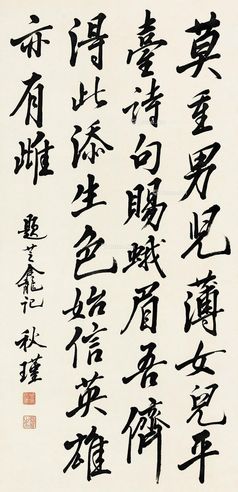 莫重男兒薄女兒平
臺詩句賜蛾眉吾儕
得此添生色始信英雄
亦有雌
題芝龕記 秋瑾